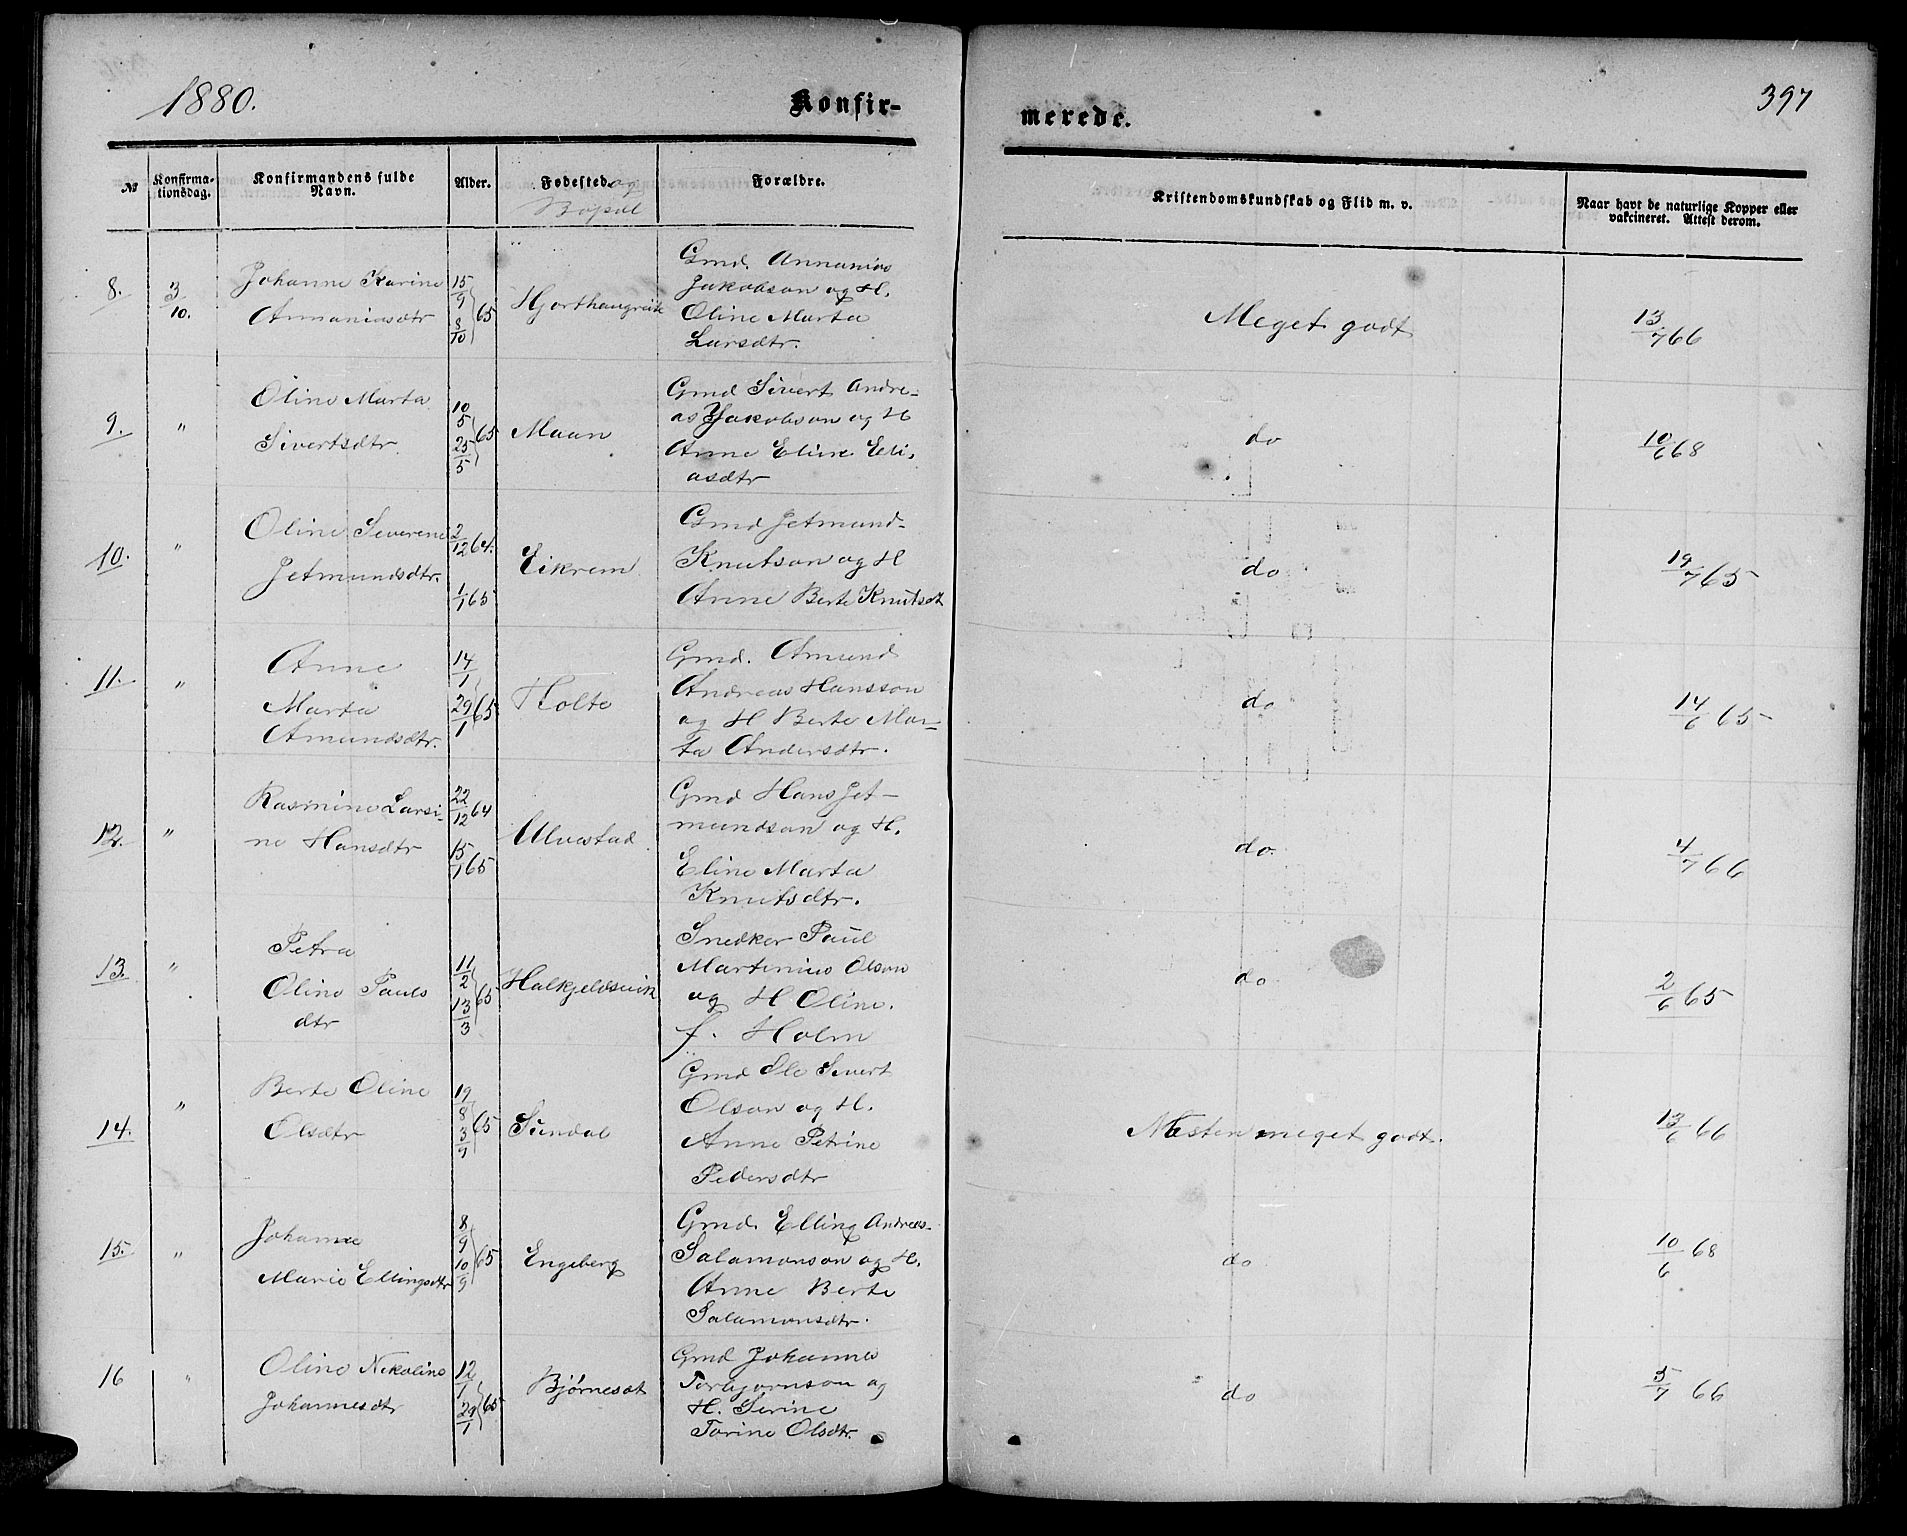 1880.
Konfir-
merede.
397
№
Konfirma-
tionsdag.
Konfirmandens fulde
Navn.
Alder.
Fødested og
Bopæl
Forældre.
Kristendomskundskab og Flid m. v.
Naar havt de naturlige Kopper eller
vakcineret. Attest derom.
8.
3/10.
Johanne Karine
Annaniasdtr
15/9 8/10 65
Hjorthaugreite
Gmd. Annanias
Jakobson og H.
Oline Marta
Larsdtr.
Meget godt
13/7 66
9.
"
Oline Marta
Sivertsdtr.
10/5 25/5 65
Maan
Gmd Sivert Andre-
as Jakobson og H
Anne Eline Eli-
asdtr
do
10/6 68
10.
"
Oline Severene
Jetmundsdtr.
2/12 64.
1/1 65
Eikrem
Gmd Jetmund
Knutson og H
Anne Berte Knutsdt
do
19/7 65
11.
"
Anne
Marta
Amundsdtr.
14/1 29/1 65
Holte
Gmd. Amund
Andreas Hansson
og H Berte Mar-
ta Andersdtr.
do
14/6 65
12.
"
Rasmine Larsi-
ne Hansdtr
22/12 64
15/1 65
Ulvestad
Gmd Hans Jet-
mundson og H.
Eline Marta
Knutsdtr.
do.
4/7 66
13.
"
Petra
Oline Pauls
dtr
11/2 13/3 65
Halkjeldsvik
Snedker Paul
Martinius Olson
og H Oline.
f. Holm
do
2/6 65
14.
"
Berte Oline
Olsdtr
19/8 3/9 65
Sundal
Gmd Ole Sivert
Olson og H.
Anne Petrine
Pedersdtr
Næsten meget godt.
13/6 66
15.
"
Johanne
Marie Ellingsdtr
8/9 10/9 65
Engeberg
Gmd. Elling Andreas
Salamonson og H.
Anne Berte
Salamonsdtr.
do
10/6 68
16
"
Oline Nikoline
Johannesdtr
12/1 29/1 65
Bjørnesæt
Gmd Johannes
Torbjørnson og
H. Serine
Torine Olsdtr.
do
5/7 66